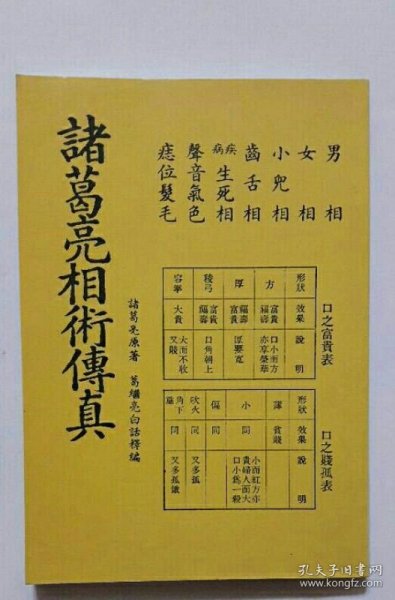 男相
女相
小兒相
齒舌相
疾病生死相
聲音氣色
痣位髮毛
口之富貴表
形狀 效果 說明
方 富貴福壽 口小而方亦享榮華
厚 福壽富貴 厚要寬
稜弓 富貴福壽 口角朝上
容拳 大貴 大而不收又賤
口之賤孤表
形狀 效果 說明
薄 貧賤
小 同 小而紅方亦貴婦人而大口小為一殺
偏 同
吹火 同 又多孤
角下垂 同 又多孤餓
諸葛亮原著 葛繼亮白話釋編
諸葛亮相術傳真
孔夫子旧书网
www.kongfz.com